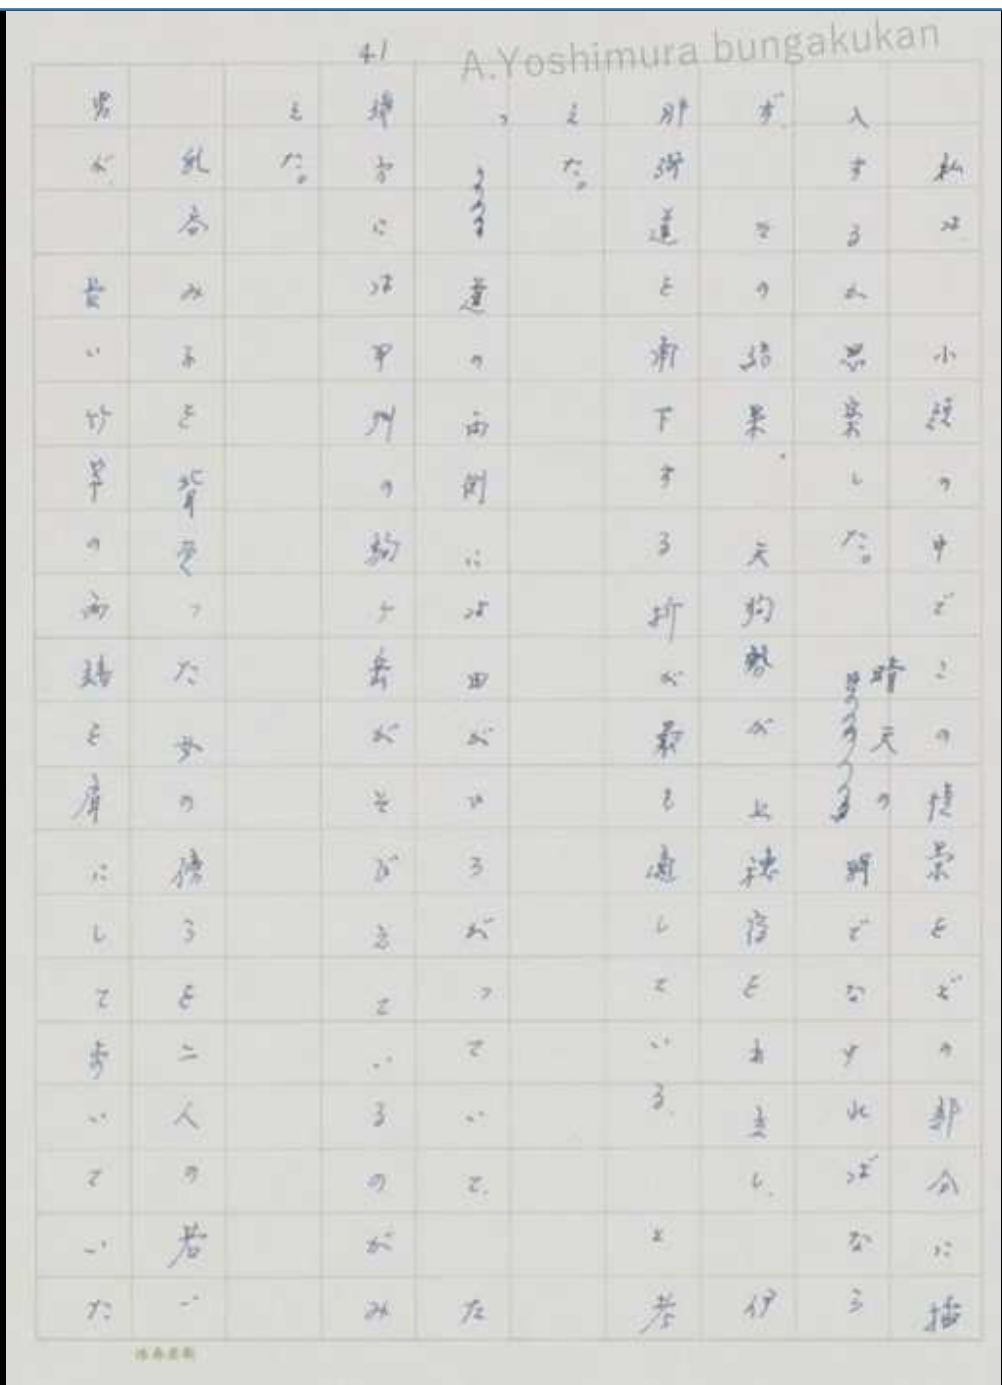 A.Yoshimura bungakukan
41
私は 小説の中でこの情景をどの部分に挿
入するか思案した。晴天の朝でなければなら
ず、その結果、天狗勢が上穂宿を出立し、伊
那街道を南下する折が最も適している、と考
えた。
道の両側には田がひろがっていて、左
後方には甲州の駒ヶ岳がそびえているのがみ
えた。
乳呑み子を背負った女の後ろを二人の若い
男が、長い竹竿の両端を肩にして歩いていた